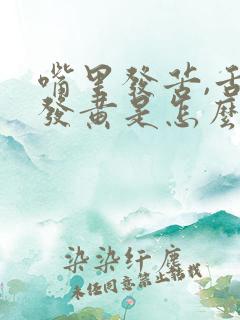 嘴里發苦,舌
發黃是怎麼
染染纤塵
未经同意禁止转载